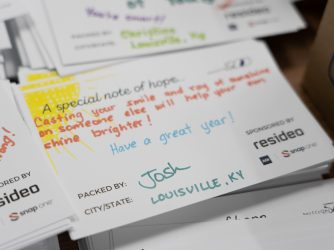 You're smart!
Christina
CITY/STATE: Louisville, Ky
resideo
snap one
A special note of hope..
Casting your smile and ray of sunshine
on someone else will help your own
shine brighter!
Have a great year!
SPONSORED BY
resideo
snap one
PACKED BY: Josh
CITY/STATE: LOUISVILLE, KY
ORED BY
resideo
snap one